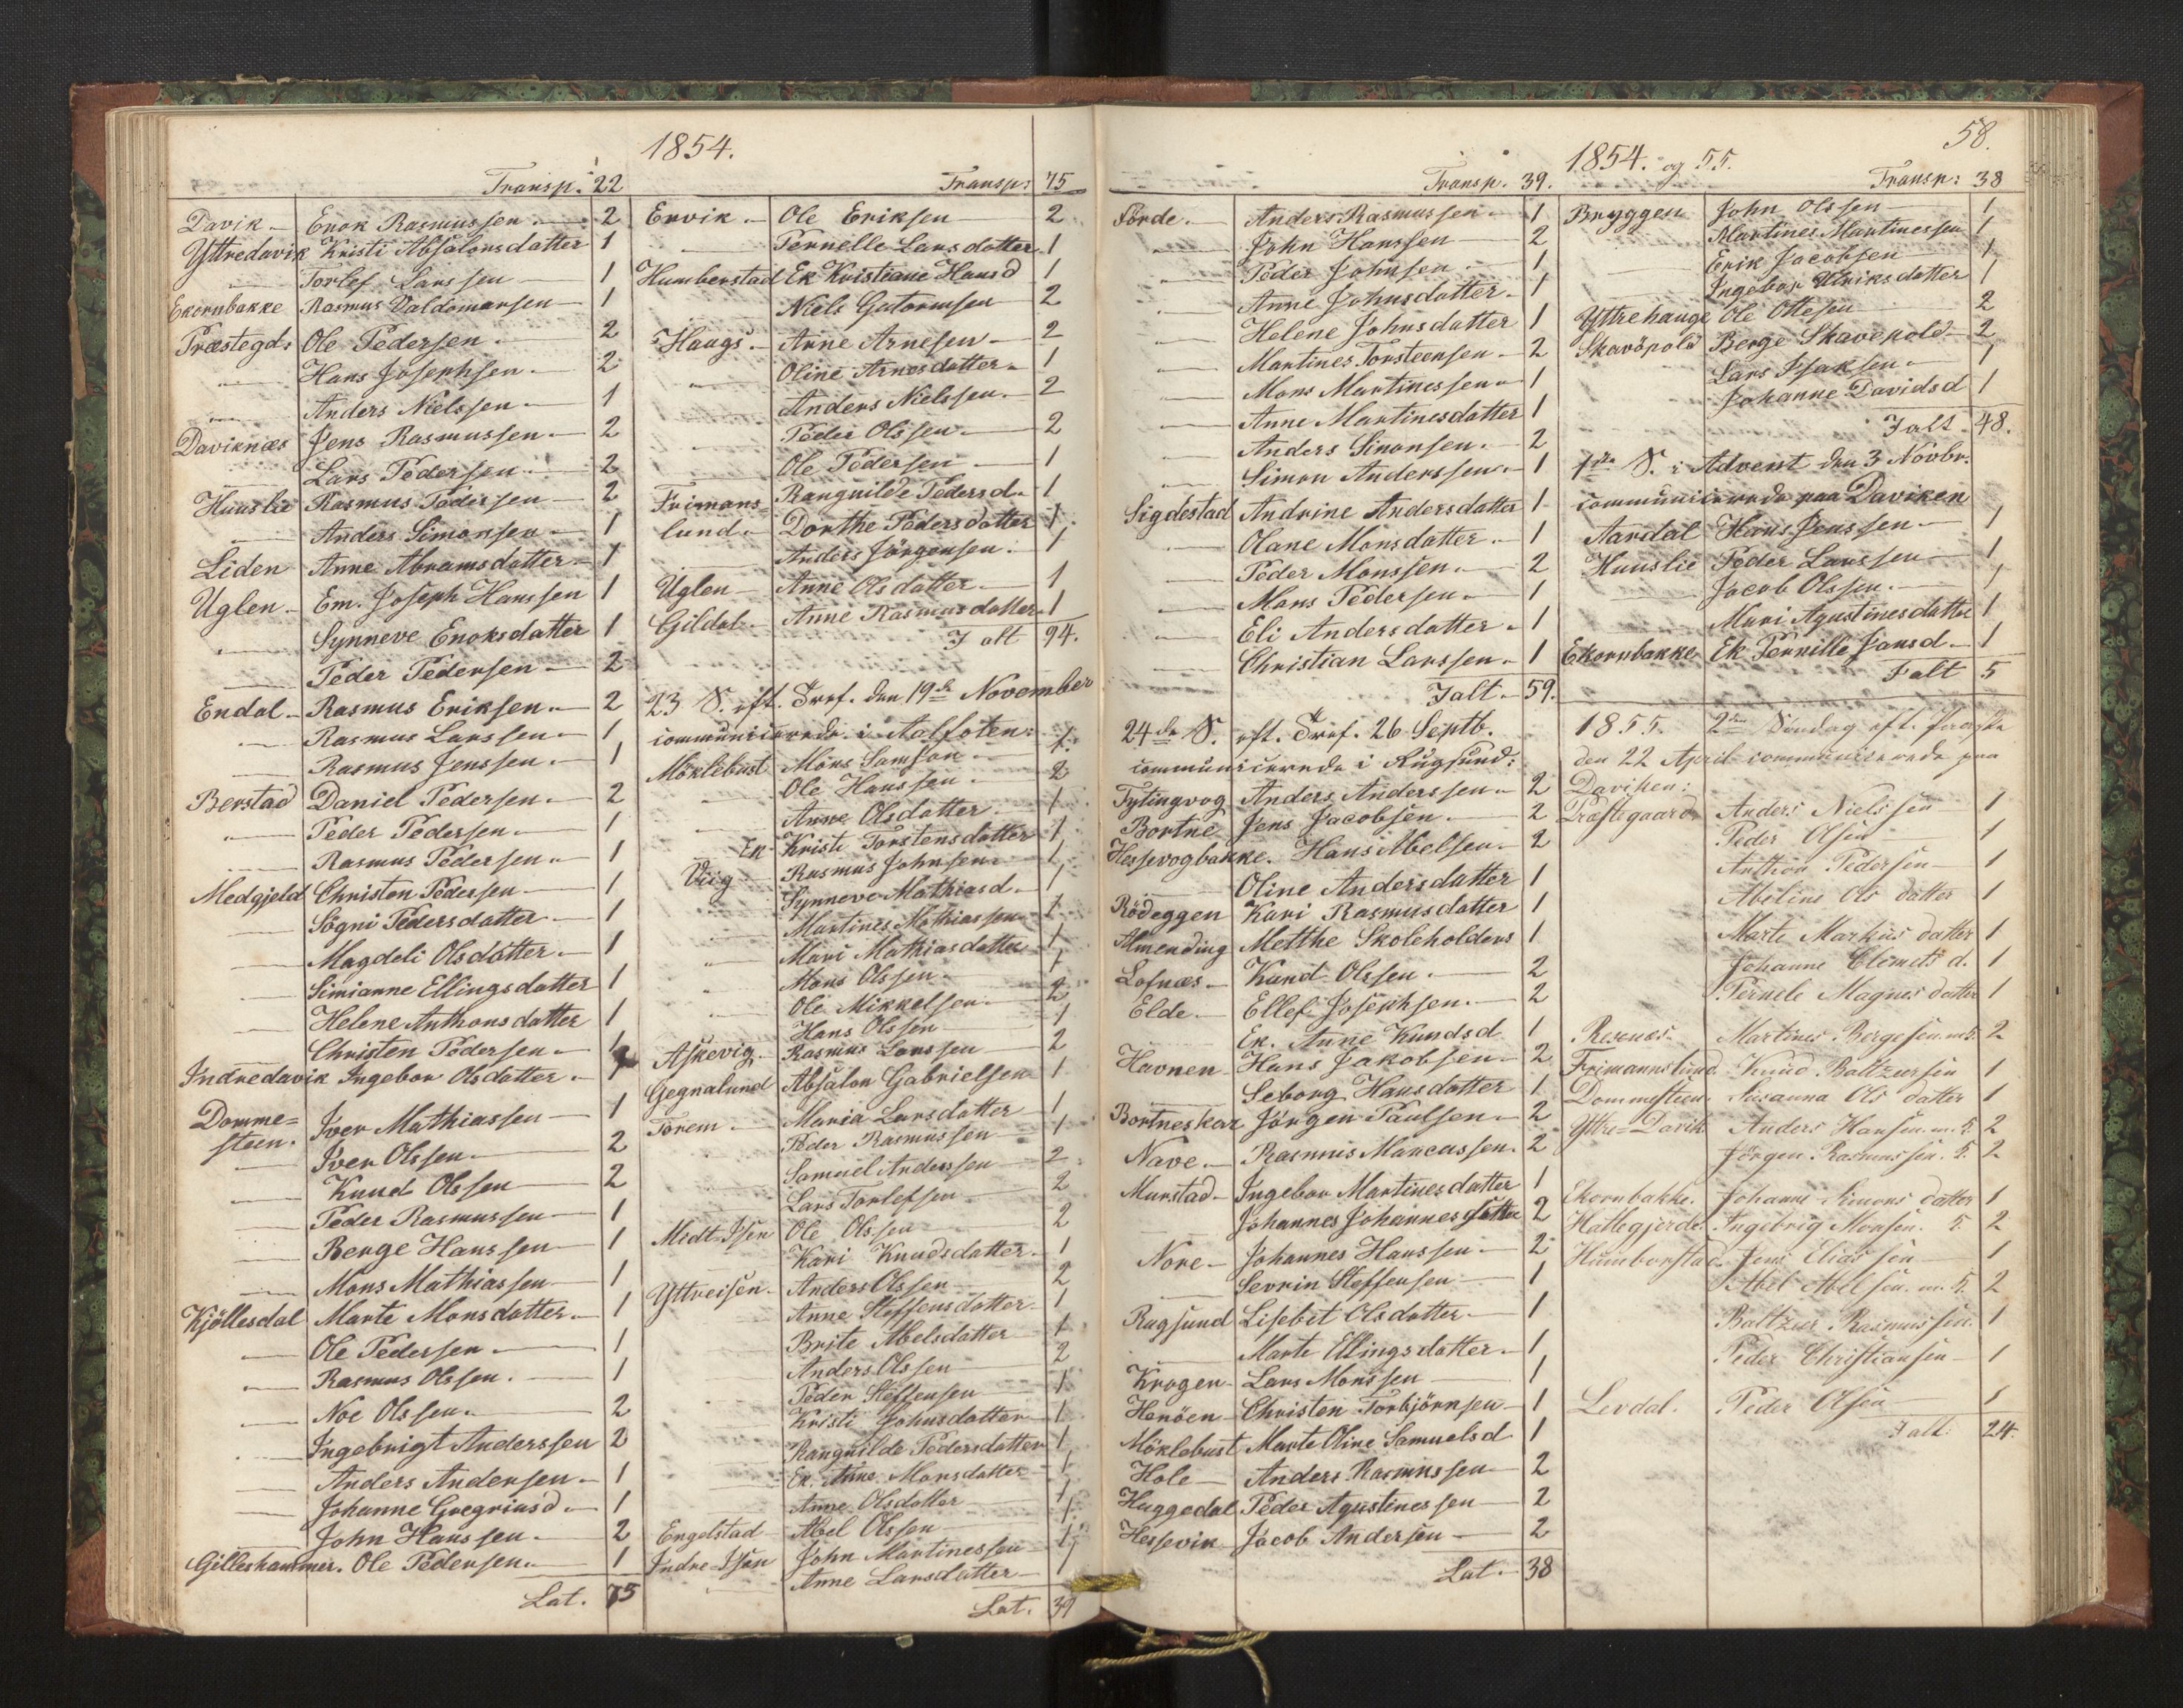 1854.
Transp. 22
Davik — Enok Rasmussen 2
Yttredavik Kristi Absalonsdatter 1
— Torlef Larssen 1
Ekornbakke Rasmus Valdemarsen 1
Præstegd: Ole Pedersen 2
— Hans Josephsen 2
— Anders Nielssen 1
Daviknæs Jens Rasmussen 2
— Lars Pedersen 2
Huuslie Rasmus Pedersen 2
— Anders Simonsen 1
Liden Anne Abramsdatter 1
Uglen Em. Joseph Hanssen 1
— Synneve Enoksdatter 1
— Peder Pedersen 2
Endal Rasmus Eriksen 2
— Rasmus Larssen 1
— Rasmus Jenssen 1
Berstad Daniel Pedersen 2
— Peder Pedersen 1
— Rasmus Pedersen 1
Medgjeld Christen Pedersen 1
— Sögni Pedersdatter 1
— Magdeli Olsdatter 1
— Simianne Ellingsdatter 1
— Helene Anthonsdatter 1
— Christen Pedersen 1
Indredavik Ingebor Olsdatter 1
Domme=
steen. Iver Mathiassen 1
— Iver Olssen 2
— Knud Olssen 2
— Peder Rasmussen 1
— Berge Hanssen 1
— Mons Mathiassen 1
Kjöllesdal Marte Monsdatter 1
— Ole Pedersen 1
— Rasmus Olssen 1
— Noe Olssen 2
— Ingebrigt Anderssen 2
— Anders Andersen 1
— Johanne Gregriusd 1
— John Hanssen 2
Gilleshammer. Ole Pedersen 1
Lat. 75
Transp: 75
Ervik Ole Eriksen 2
— Pernelle Larsdatter 1
Humberstad Ek Kristiane Hansd 1
Niels Gutormsen 2
Haugs Arne Arnesen 2
— Oline Arnesdatter 1
Anders Nielssen 2
Peder Olssen 2
Ole Pedersen 1
Frimans= Ranguilde Pedersd 1
lund Dorthe Pedersdatter 1
— Anders Jörgensen 1
Uglen Anne Olsdatter 1
Gildal Anne Rasmusdatter 1
I alt 94.
23 S. eft. Tref. den 19de November
communicerede i Aalfoten:
Möklebust Mons Samson 1
Ole Hanssen 2
Anne Olsdatter 1
Ek Kristi Torstensdatter 1
Viig Rasmus Johnsen 1
Synneve Mathiasd 1
Martines Mathiassen 1
Mari Mathiasdatter 1
Mons Olssen 1
Ole Mikkelsen 2
Hans Olssen 1
Askevig Rasmus Larssen 2
Gegnalund Absalon Gabrielsen 1
Torem Maria Larsdatter 1
Peder Rasmussen 1
Samuel Anderssen 2
Lars Torlefsen 2
Medt-Isen Ole Olssen 2
Kari Knudsdatter 1
Yttreisen Anders Olssen 2
Anne Steffensdatter 1
Brite Abelsdatter 1
Anders Olssen 2
Peder Steffensen 1
Kristi Johnsdatter 1
Ranguilde Pedersdatter 1
Ek. Anne Monsdatter 1
Anne Olsdatter 1
Engelstad Abel Olssen 1
Indre Isen John Martinessen 1
Anne Larsdatter 1
Lat. 39
58.
1854. og 55.
Transp. 39.
Förde Anders Rasmussen 1
— John Hanssen 2
— Peder Johnsen 1
— Anne Johnsdatter 1
— Helene Johnsdatter 1
— Martines Torsteensen 2
— Mons Martinessen 1
— Anne Martinesdatter 1
— Anders Simonsen 2
— Simon Anderssen 1
Sigdestad Andrine Andersdatter 1
— Olane Monsdatter 1
— Peder Monssen 2
— Mons Pedersen 1
— Eli Andersdatter 1
— Christian Larssen 1
I alt 59.
24de S. eft. Tref. 26 Septb.
communicerede i Rugsund:
Tytingvog Anders Anderssen 2
Bortne Jens Jacobsen 2
Hessevogbakke. Hans Abelsen 2
Oline Andersdatter 1
Rödeggen Kari Rasmusdatter 1
Almending Metthe Skoleholders 1
Lofnæs Knud Olssen 2
Elde Ellef Josephsen 2
Ek. Anne Knudsd 1
Havnen Hans Jakobsen 2
Seborg Hansdatter 1
Bortneskar Jörgen Paulsen 2
Nave Rasmus Marcussen 2
Murstad Ingebor Martinesdatter 1
Johannes Johannesdatter 2
Nore Johannes Hanssen 2
Sevrin Steffensen 1
Rugsund Lisebet Olsdatter 1
Marte Ellingsdatter 1
Krogen Lars Monssen 1
Henöen Christen Torbjörnsen 1
Möklebust Marte Oline Samuelsd 1
Hole Anders Rasmussen 2
Huggedal Peder Agustinessen 2
Hessevik Jacob Andersen 2
Lat. 38
Transp: 38
Bryggen John Olssen 1
Martines Martinessen 1
Erik Jacobsen 1
Ingebor Ulriksdatter 1
Yttrehauge Ole Ottesen 2
Skavöpold Berge Skavepold 2
Lars Isaksen 1
Johanne Davidsd 1
I alt 48.
1ste S. i Advent den 3 Novbr.
communicerede paa Daviken
Aardal Hans Jenssen 1
Huuslie Peder Larssen 1
Jacob Olssen 1
Mari Agustinesdatter 1
Ekornbakke Ek Pernille Jansd 1
I alt 5
1855. 2den Søndag eft. Paaske
den 22 April communicerede paa
Daviken:
Præstegaard Anders Nielssen 1
Peder Olsen 1
Anthon Pedersen 1
Abeline Ols datter 1
Marte Markus datter 1
Johanne Clemets d. 1
Pernele Magnes datter 1
Resenes Martines Bergesen m 5. 2
Frimannslund Knud Baltzersen 1
Dommesteen Susanna Ols datter 1
Yttre=Davik Anders Hansen m. 5. 2
Jörgen Rasmussen. 5. 2
Ekornbakke. Johanne Simons datter 1
Hallegjerde Ingebrig Monsen. 5. 2
Humborstad Jens Eliassen 1
Abel Abelsen. m. 5. 2
Baltzer Rasmussen 1
Peder Christiansen 1
Levdal. Peder Olsen 1
I alt: 24.